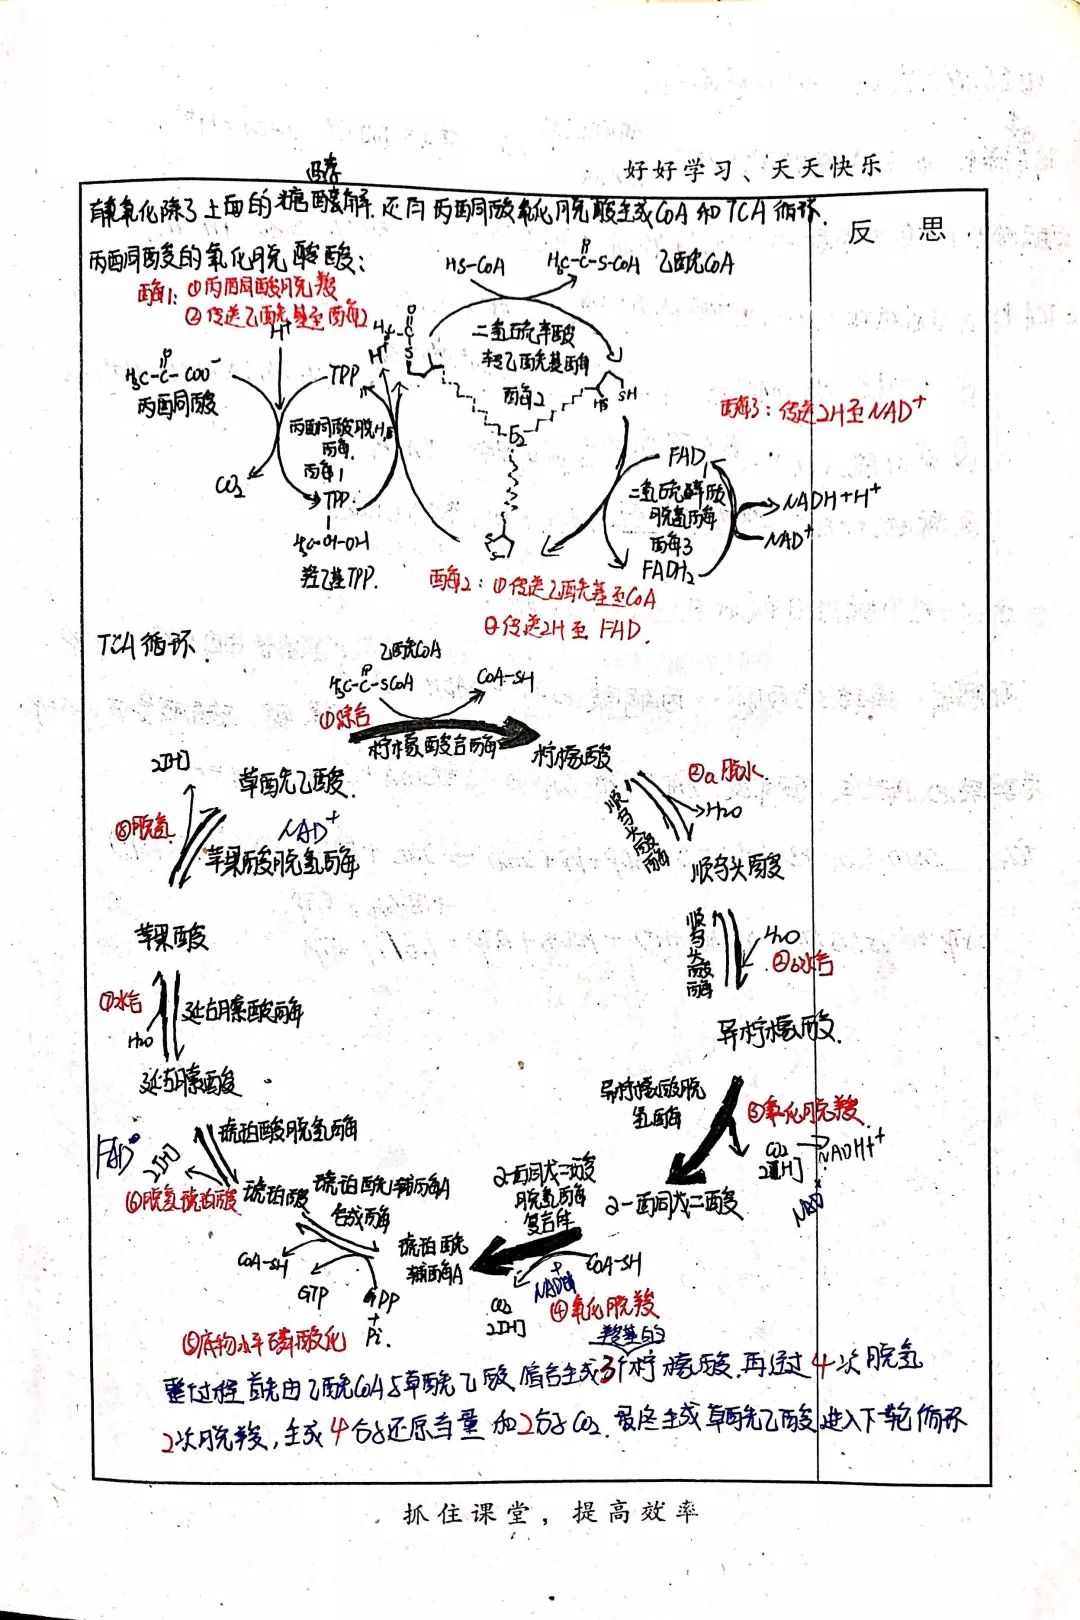 好好学习、天天快乐
反思
酵
有氧氧化除了上面的糖酵解.还有丙酮酸氧化脱羧生成CoA和TCA循环.
丙酮酸的氧化脱羧酸:
酶1:①丙酮酸脱羧
②传递乙酰基至酶2
HS-CoA
O
H3C-C-S-CoA 乙酰CoA
H+
O
H3C-C-COO-
丙酮酸
TPP
丙酮酸脱H
酶
酶1
CO2
TPP
H3C-CH-OH
羟乙基TPP.
H+
二氢硫辛酸
转乙酰基酶
酶2
HS
SH
酶3:传递2H至NAD+
FAD
二氢硫辛酸
脱氢酶
酶3
FADH2
NADH+H+
NAD+
S
S
酶2:①传递乙酰基至CoA
②传递2H至FAD.
TCA循环.
乙酰CoA
O
H3C-C-SCoA
CoA-SH
①综合
柠檬酸合酶
柠檬酸
②a脱水.
H2O
顺乌头酸酶
顺乌头酸
2[H]
草酰乙酸.
⑧脱氢
NAD+
苹果酸脱氢酶
顺乌头酸酶
H2O
②b水合
苹果酸
异柠檬酸.
⑦水合
H2O
延胡索酸酶
延胡索酸
异柠檬酸脱
氢酶
③氧化脱羧
CO2
2[H]
NADH+
NAD+
FAD
琥珀酸脱氢酶
2[H]
⑥脱氢琥珀酸
琥珀酸
琥珀酰辅酶A
合成酶
2-酮戊二酸
脱氢酶
复合体
2-酮戊二酸
琥珀酰
辅酶A
CoA-SH
GTP
GDP
+
Pi.
CoA-SH
CO2
2[H]
④氧化脱羧
⑤底物水平磷酸化
羧基的
整过程首先由乙酰CoA与草酰乙酸缩合生成3个柠檬酸.再通过4次脱氢
2次脱羧,生成4分子还原当量和2分子CO2.最终生成草酰乙酸进入下一轮循环
抓住课堂,提高效率